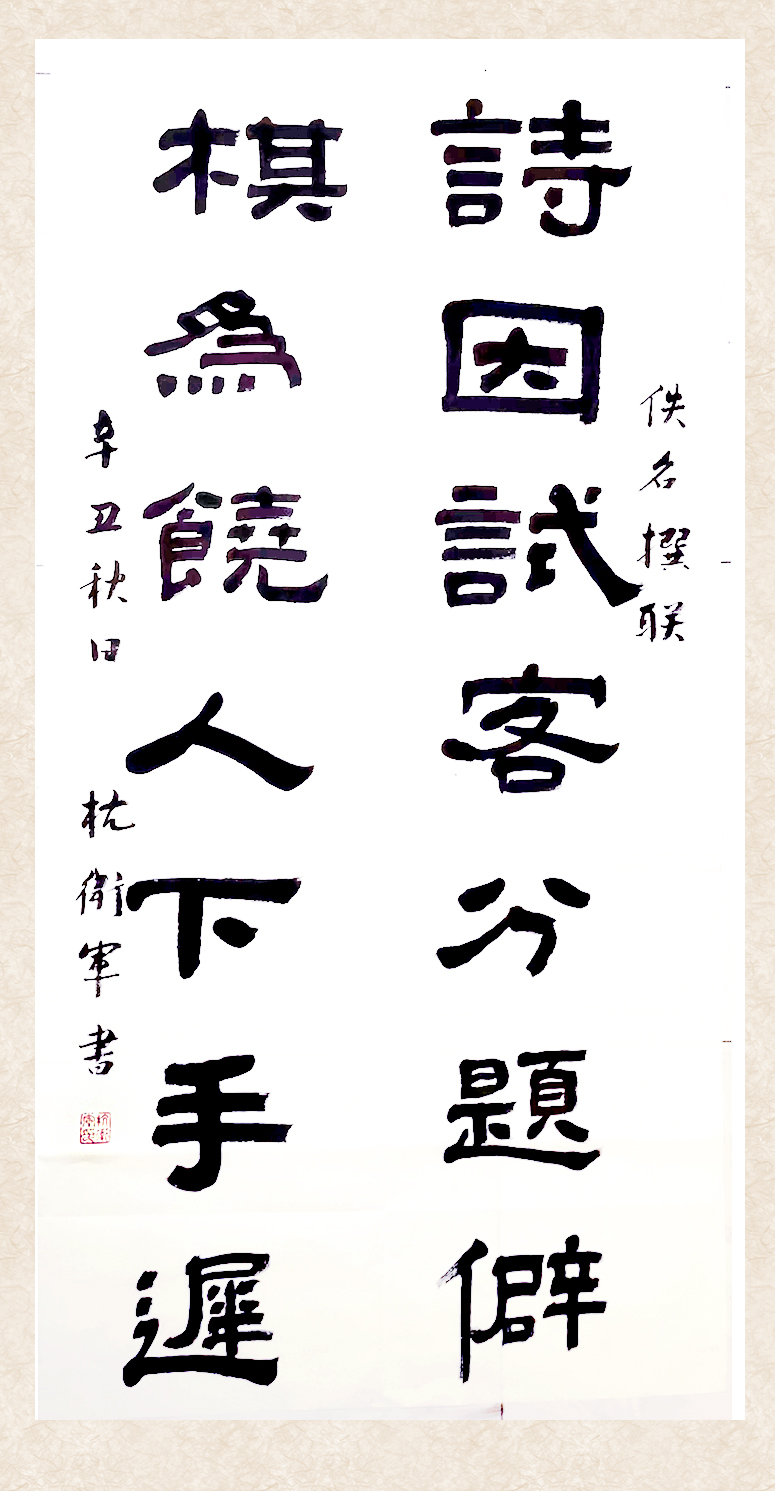 佚名撰联
詩因試客分題僻
棋為饒人下手遲
辛丑秋日
杭衛軍书